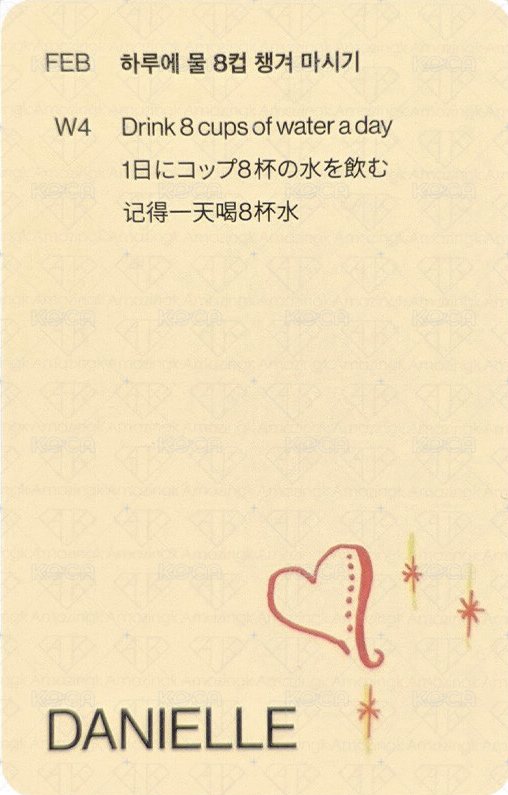 FEB 하루에 물 8컵 챙겨 마시기
W4 Drink 8 cups of water a day
1日にコップ8杯の水を飲む
记得一天喝8杯水
DANIELLE